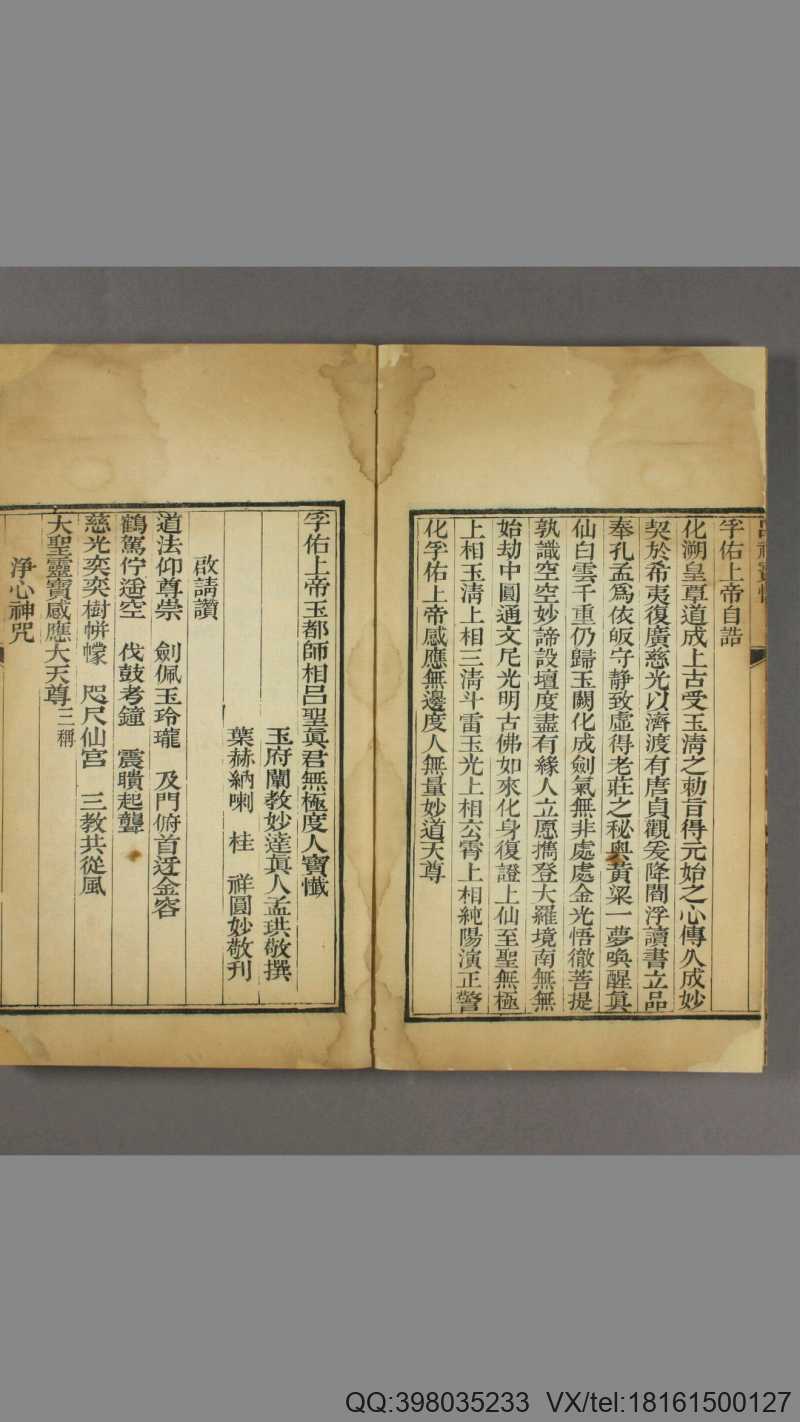 孚佑上帝自誥
化溯皇覃道成上古受玉淸之勅旨得元始之心傳久成妙
契於希夷復廣慈光以濟渡有唐貞觀爰降閻浮讀書立品
奉孔孟爲依皈守静致虛得老莊之秘奥黃粱一夢喚醒眞
仙白雲千重仍歸玉闕化成劍氣無非處處金光悟徹菩提
孰識空空妙諦設壇度盡有緣人立愿擕登大羅境南無無
始劫中圓通文尼光明古佛如來化身復證上仙至聖無極
上相玉淸上相三淸斗雷玉光上相玄霄上相純陽演正警
化孚佑上帝感應無邊度人無量妙道天尊
孚佑上帝玉都師相呂聖眞君無極度人寶懺
玉府闡教妙達眞人孟珙敬撰
葉赫納喇 桂 祥圓妙敬刊
啟請讚
道法仰尊崇 劍佩玉玲瓏 及門俯首迓金容
鶴駕佇遥空 伐鼓考鐘 震聵起聾
慈光奕奕樹帡幪 咫尺仙宫 三教共從風
大聖靈寶感應大天尊三稱
淨心神咒
QQ:398035233 VX/tel:18161500127